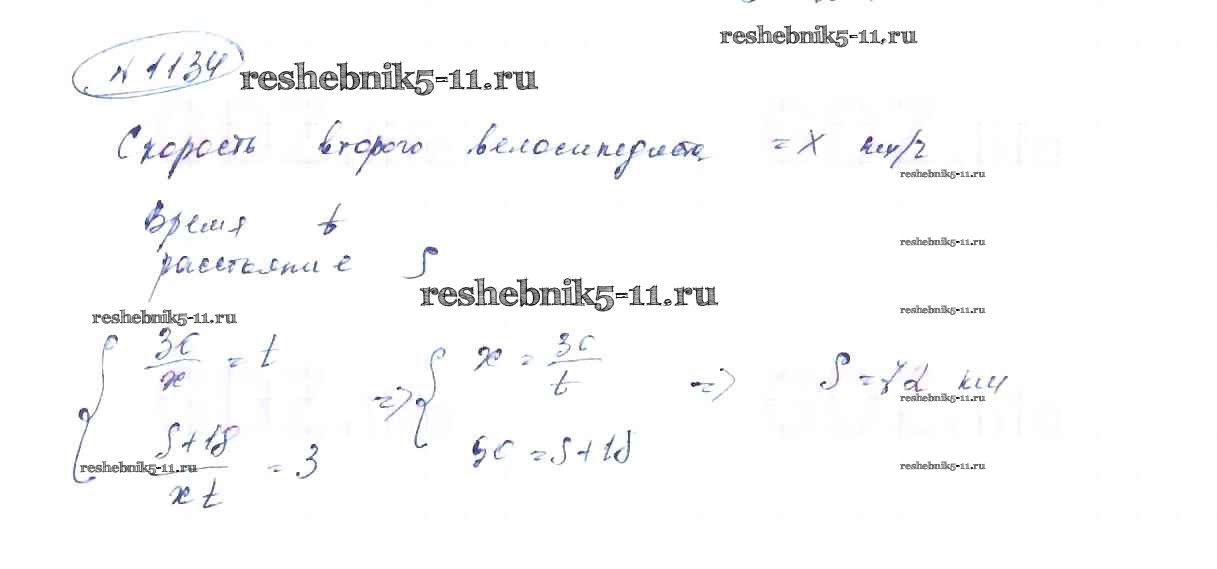 reshebnik5-11.ru
№ 1134 reshebnik5-11.ru
Скорость второго велосипедиста = x км/ч
reshebnik5-11.ru
Время t
reshebnik5-11.ru
расстояние S
reshebnik5-11.ru
reshebnik5-11.ru
reshebnik5-11.ru
30/x = t
x = 30/t
=> =>
S = 72 км
reshebnik5-11.ru
S+18/xt = 3
90 = S+18
reshebnik5-11.ru
reshebnik5-11.ru